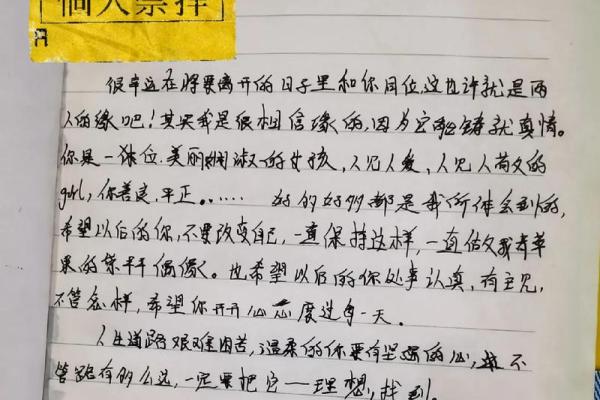 個人崇拜
很幸运在将要离开的日子里和你同位,这也许就是两
人的缘吧!其实我是很相信缘的,因为它能铸就真情。
你是一位美丽娴淑的女孩,人见人爱,人见人荷文的
girl,你善良,平正。…… 好的好的都是我所体会到的,
希望以后的你,不要改变自己,一直保持这样,一直做又我青苹
果的 偶像。也希望以后的你处事认真,有主见,
不管怎样,希望你开开心心度过每一天。
人生道路艰难困苦,温柔的你要有坚强的心,不
管路有多么远,一定要把它——理想,找到。